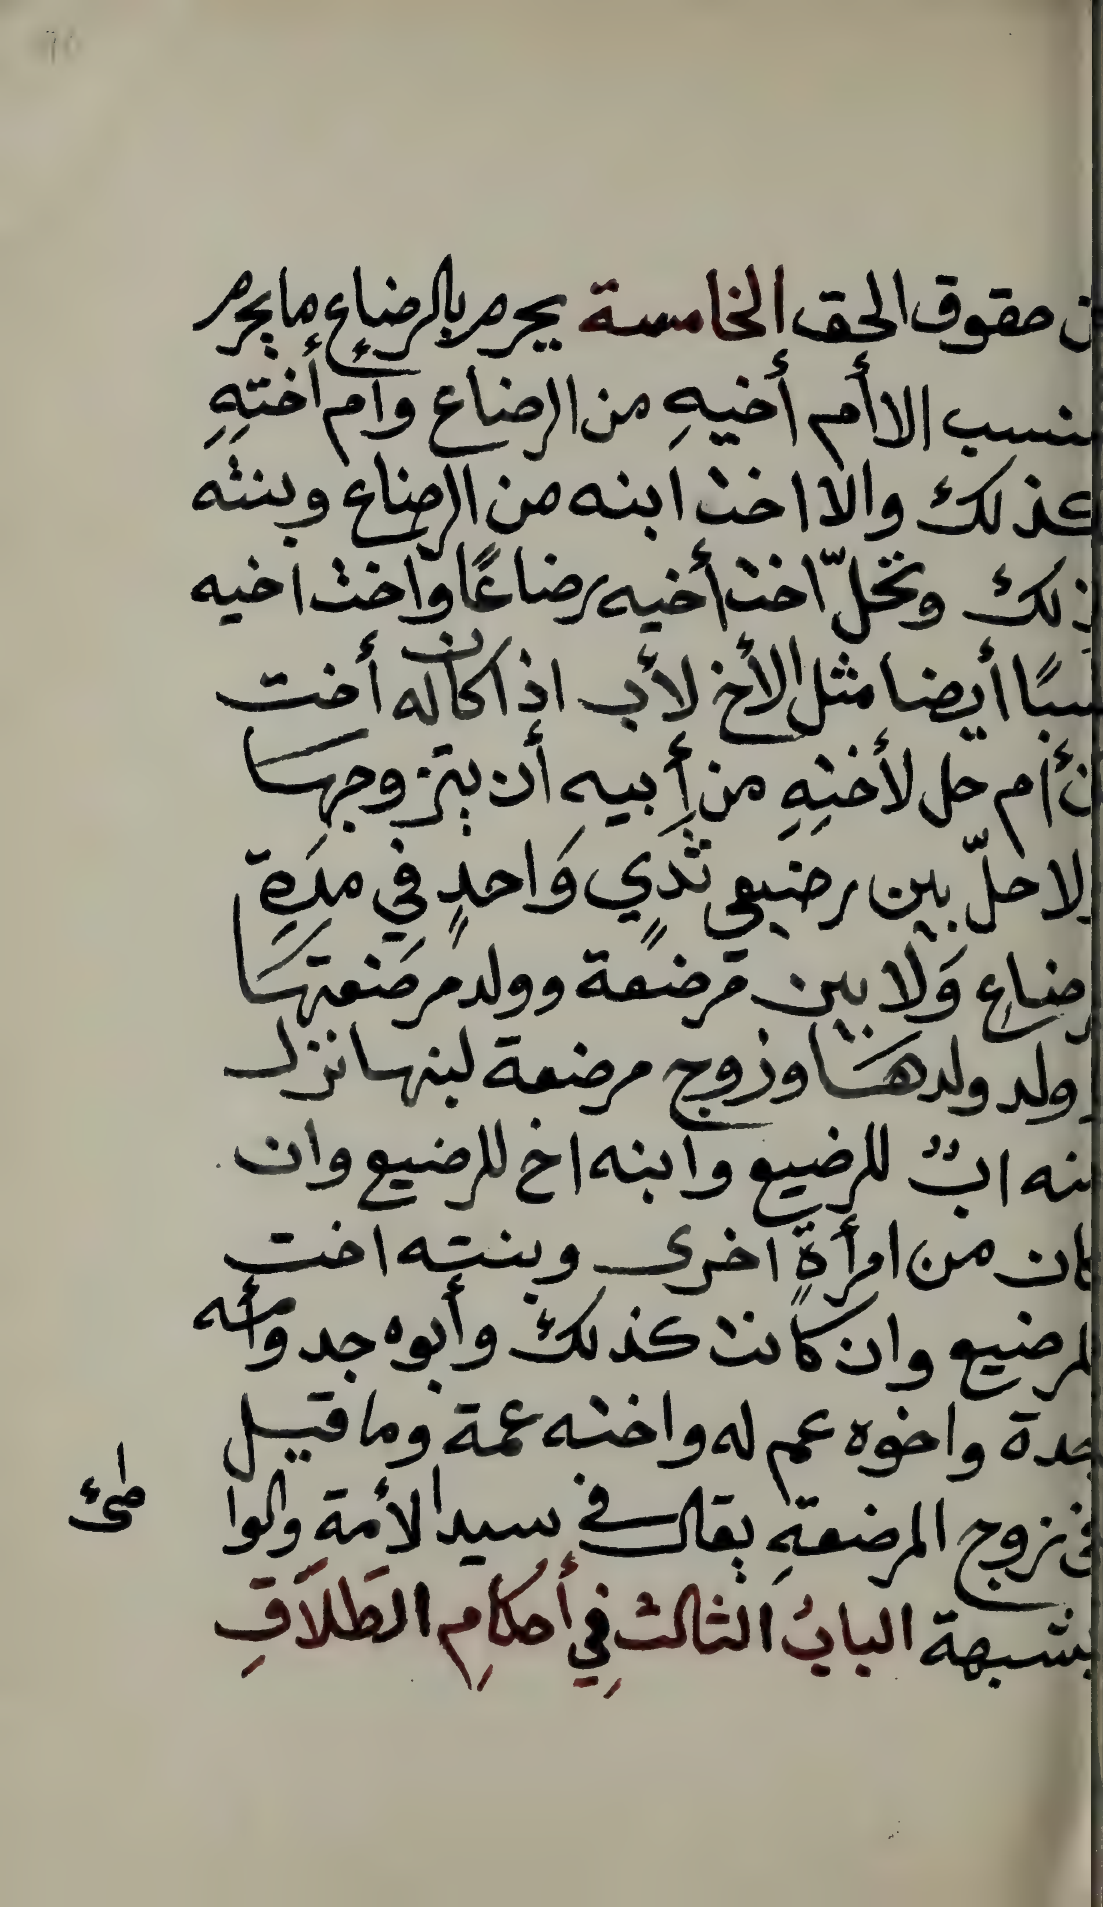 حقوق الحق الخامسة يحرم بالرضاع ما يحرم
الا أم أخيهِ من الرضاع وأم أختِهِ
كذلك والا اخت ابنه من الرضاع وبنته
وتحلّ اخت أخيه رضاعًا واخت اخيه
أيضا مثل الأخ لأب اذا كان له أخت
أم حل لأختِهِ من أَبيه أن يتزوجهَا
ولا حلّ بين رضيعي ثَديٍ وَاحدٍ فِي مدَةِ
رضاع وَلا بين مرضعة وولد مرضعتهَا
وولد ولدهَا وزوج مرضعة لبنها نزل
منه ابٌ للرضيع وابنه اخ للرضيع وان
كان من امرأةٍ اخرى وبنته اخت
للرضيع وان كانت كذلك وأبوه جد وأمه
جدة واخوه عم له واخته عمة وما قيل
في زوج المرضعةِ يقال في سيد الأمة والوا
طئ
بشبهة البابُ الثالث فِي أحكامِ الطَلاَقِ